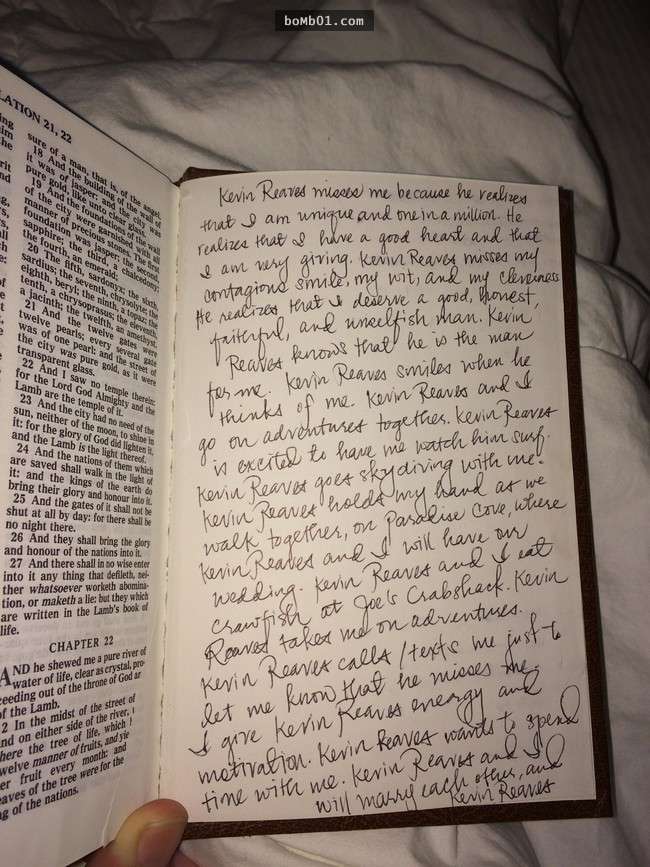 boMb01.com
LATION 21, 22
sure of a man, that is, of the angel.
18 And the building of the wall of
it was of jasper: and the city was
pure gold, like unto clear glass.
19 And the foundations of the wall
of the city were garnished with all
manner of precious stones. The first
foundation was jasper; the second,
sapphire; the third, a chalcedony;
the fourth, an emerald;
20 The fifth, sardonyx; the sixth,
sardius; the seventh, chrysolyte; the
eighth, beryl; the ninth, a topaz; the
tenth, a chrysoprasus; the eleventh,
a jacinth; the twelfth, an amethyst.
21 And the twelve gates were
twelve pearls; every several gate
was of one pearl: and the street of
the city was pure gold, as it were
transparent glass.
22 And I saw no temple therein:
for the Lord God Almighty and the
Lamb are the temple of it.
23 And the city had no need of the
sun, neither of the moon, to shine in
it: for the glory of God did lighten it,
and the Lamb is the light thereof.
24 And the nations of them which
are saved shall walk in the light of
it: and the kings of the earth do
bring their glory and honour into it.
25 And the gates of it shall not be
shut at all by day: for there shall be
no night there.
26 And they shall bring the glory
and honour of the nations into it.
27 And there shall in no wise enter
into it any thing that defileth, nei-
ther whatsoever worketh abomina-
tion, or maketh a lie: but they which
are written in the Lamb's book of
life.
CHAPTER 22
AND he shewed me a pure river of
water of life, clear as crystal, pro-
ceeding out of the throne of God and
of the Lamb.
2 In the midst of the street of
and on either side of the river,
there the tree of life, which
twelve manner of fruits, and yie
er fruit every month: and
eaves of the tree were for the
ng of the nations.
Kevin Reaves misses me because he realizes
that I am unique and one in a million. He
realizes that I have a good heart and that
I am very giving. Kevin Reaves misses my
contagious smile, my wit, and my cleverness
He realizes that I deserve a good, honest,
faithful, and unselfish man. Kevin
Reaves knows that he is the man
for me. Kevin Reaves smiles when he
thinks of me. Kevin Reaves and I
go on adventures together. Kevin Reaves
is excited to have me watch him surf.
Kevin Reaves goes skydiving with me.
Kevin Reaves holds my hand as we
walk together, on Paradise Cove, where
Kevin Reaves and I will have our
wedding. Kevin Reaves and I eat
crawfish at Joe's Crabshack. Kevin
Reaves takes me on adventures.
Kevin Reaves calls/texts me just to
let me know that he misses me.
I give Kevin Reaves energy and
motivation. Kevin Reaves wants to spend
time with me. Kevin Reaves and I
will marry each other, and
Kevin Reaves